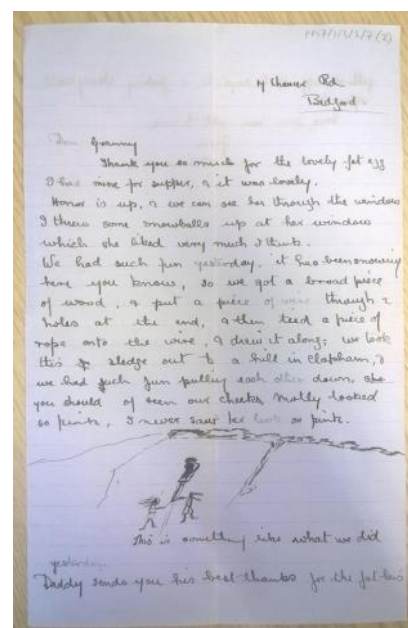 Chaucer Rd.
Bedford.
Dear Granny
Thank you so much for the lovely fat egg
I had mine for supper, & it was lovely.
Honor is up, & we can see her through the window
I threw some snowballs up at her window
which she liked very much I think.
We had such fun yesterday. it has been snowing
here you know, so we got a broad piece
of wood, & put a piece of wire through 2
holes at the end, & then tied a piece of
rope onto the wire, & drew it along; we took
this sledge out to a hill in Clapham, &
we had such fun pulling each other down,
you should of seen our cheeks Molly looked
so pink, I never saw her look so pink.
This is something like what we did
yesterday.
Daddy sends you his best thanks for the